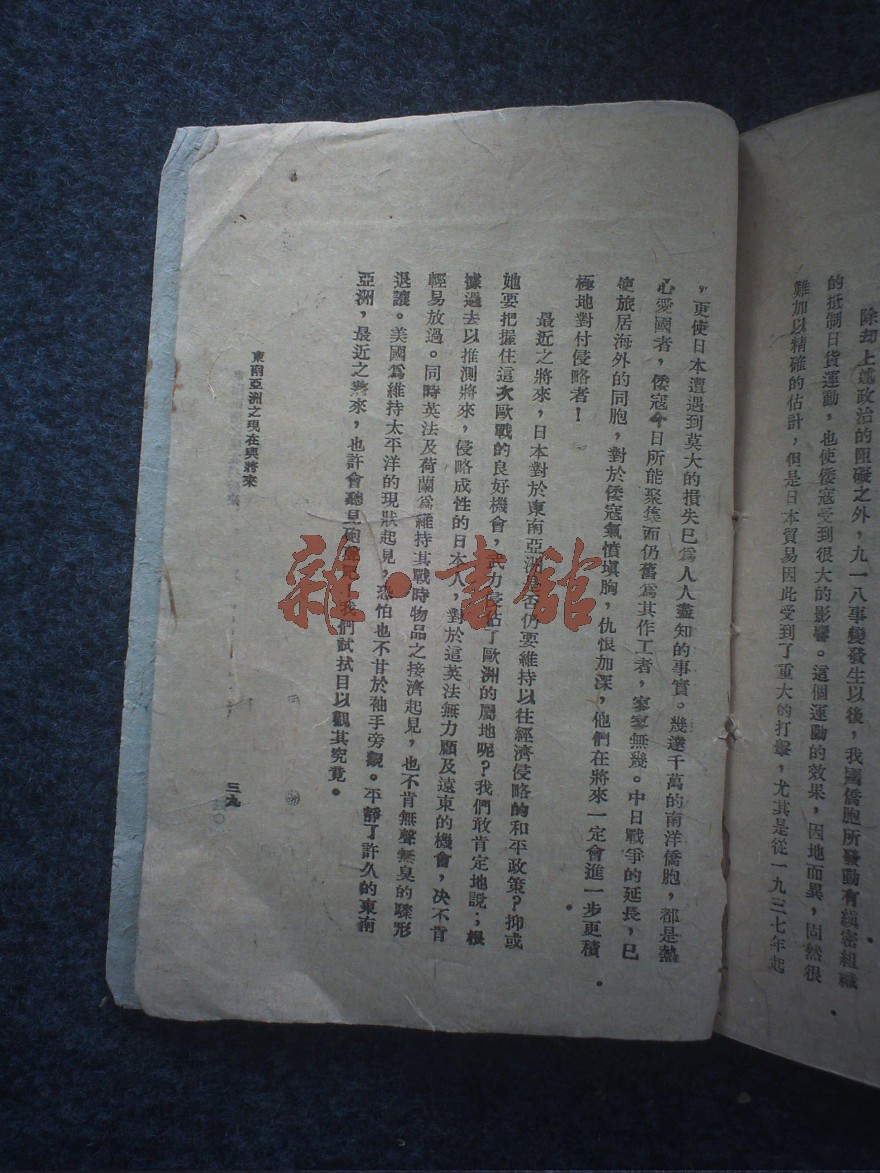 除却上述政治的阻礙之外，九一八事變發生以後，我國僑胞所發動有縝密組織
的抵制日貨運動，也使倭寇受到很大的影響。這個運動的效果，因地而異，固然很
難加以精確的估計，但是日本貿易因此受到了重大的打擊，尤其是從一九三七年起
，更使日本遭遇到莫大的損失已爲人人盡知的事實。幾達千萬的南洋僑胞，都是熱
心愛國者，倭寇今日所能聚集而仍舊爲其作工者，寥寥無幾。中日戰爭的延長，已
使旅居海外的同胞，對於倭寇氣憤填胸，仇恨加深，他們在將來一定會進一步更積
極地對付侵略者！
最近之將來，日本對於東南亞洲是否仍要維持以往經濟侵略的和平政策？抑或
她要把握住這次歐戰的良好機會，武力侵佔了歐洲的屬地呢？我們敢肯定地說；根
據過去以推測將來，侵略成性的日本人，對於這英法無力顧及遠東的機會，决不肯
輕易放過。同時英法及荷蘭爲維持其戰時物品之接濟起見，也不肯無聲無臭的隳形
退讓。美國爲維持太平洋的現狀起見，恐怕也不甘於袖手旁觀。平靜了許久的東南
亞洲，最近之將來，也許會聽見砲聲呢！我們試拭目以觀其究竟。
東南亞洲之現在與將來
三九
雜·書館